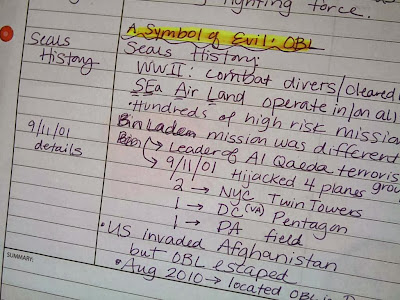 fighting force.
A Symbol of Evil: OBL
Seals History
Seals History:
WWII: combat divers/cleared
SEa Air Land operate in/on all
• Hundreds of high risk mission
Bin Laden mission was different
9/11/01 details
→ Leader of Al Qaeda terroris
grou
→ 9/11/01 Hijacked 4 planes
2 → NYC Twin Towers
1 → DC (VA) Pentagon
1 → PA field
• US invaded Afghanistan
but OBL escaped
SUMMARY:
• Aug 2010 → located OBL in